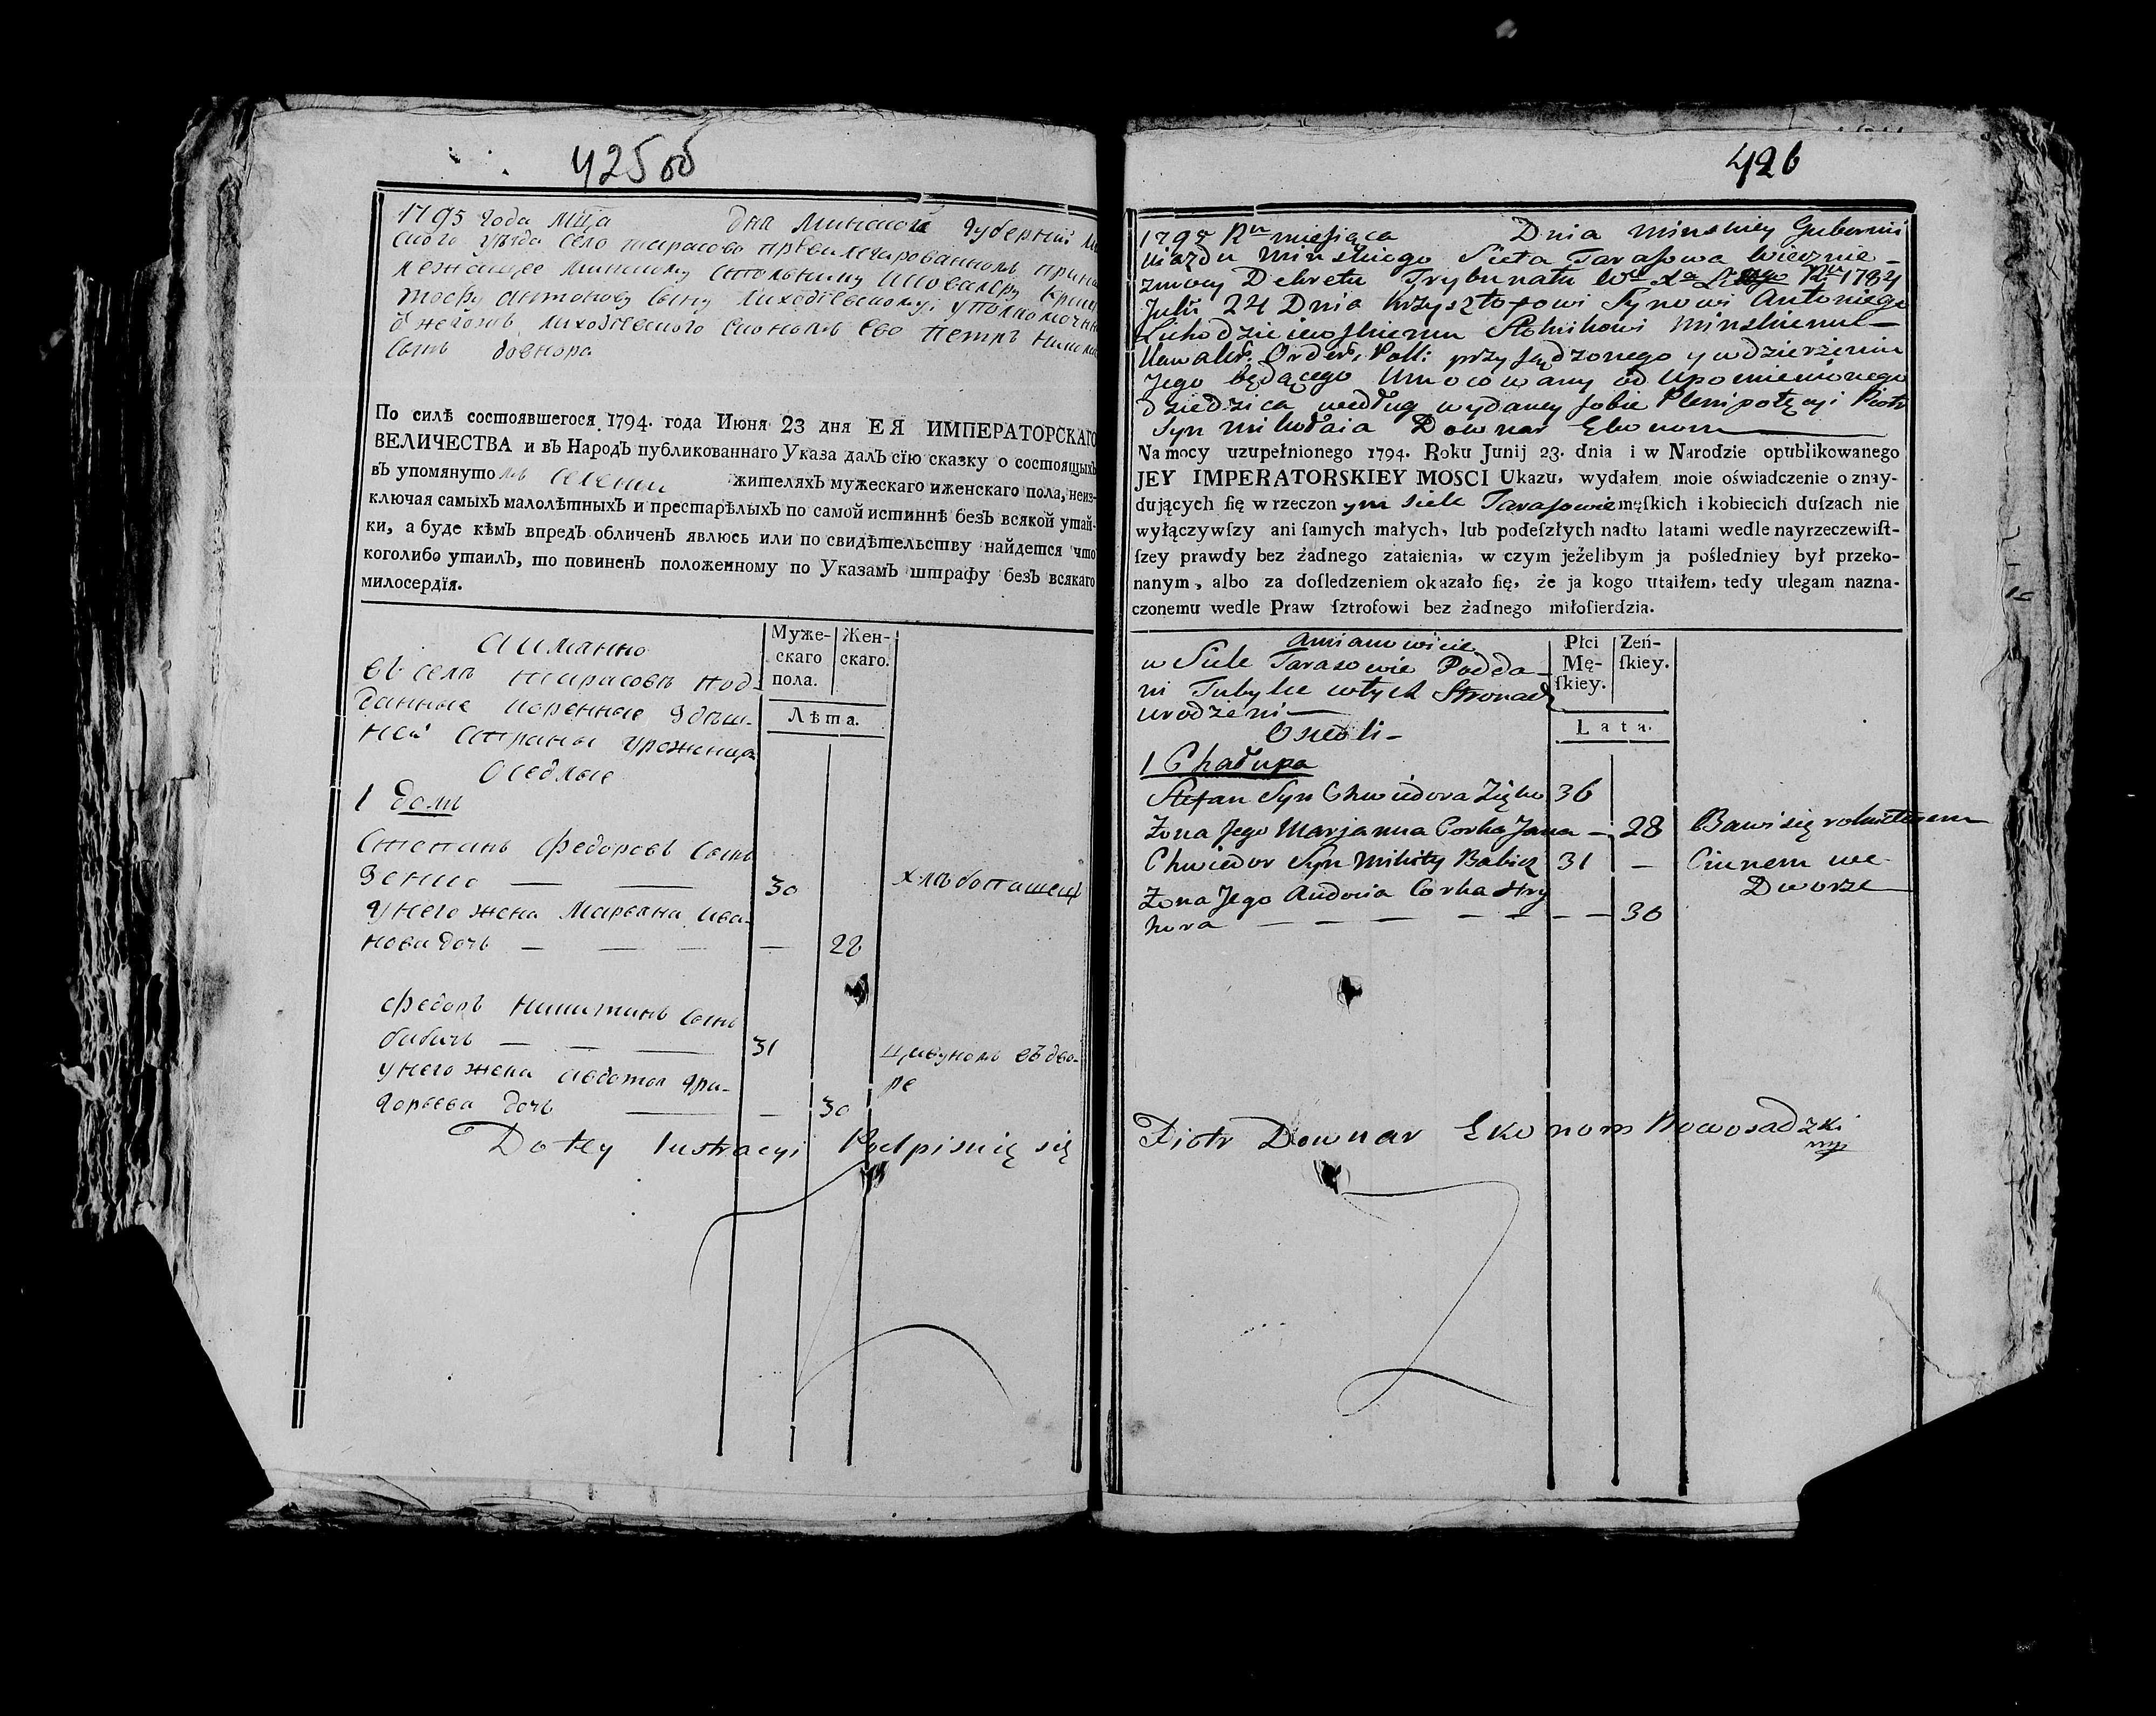 425 об
1795 года мца дня Минской губернии
ского уезда село тарасово
лежащее минскому стольнику и кавалеру
Антонову сыну уполномочны
эконом его Петр
сын довнора
По силѣ состоявшегося 1794. года Июня 23 дня ЕЯ ИМПЕРАТОРСКАГО
ВЕЛИЧЕСТВА и въ Народъ публикованнаго Указа далъ сїю сказку о состоящыхъ
въ упомянутомъ селении жителяхъ мужескаго иженскаго пола, неиз-
ключая самыхъ малолѣтныхъ и престарѣлыхъ по самой истиннѣ безъ всякой утай-
ки, а буде кѣмъ впредъ обличенъ явлюсь или по свидѣтельству найдется что
коголибо утаилъ, то повиненъ положенному по Указамъ штрафу безъ всякаго
милосердїя.
Муже- скаго пола. Жен- скаго.
Лѣта.
а имянно
въ селѣ тарасовѣ под-
данные коренные здѣш-
ней страны уроженцы
Оседлые
1 домъ
Степанъ Федоровъ сынъ
Зенко — — 30 хлѣбопашец
у него жена Марьяна Ива-
нова дочь — — — — 28
Федоръ Никитинъ сынъ
бабичъ — — — 31 цивуномъ въ дво-
у него жена Авдотья Гри- ре
горьева дочь — — 30
Do tey lustracyi Podpisuię się
426
1795 Ru miesiąca Dnia Minskiey Gubernii
uiazdu Minskiego Sieła Tarasowa wiecznie-
Dekretu Trybunału 1784
Julii 24 Dnia Krzysztofowi Synowi Antoniego
Stolnikowi Minskiemu—
Kawaler. Order. Poll: przysądzonego y wdzierżeniu
Jego będącego Umocowany od Upomienionego
Dziedzica według wydaney sobie Plenipotęcyi Piotr
Syn Mikołaia Downar Ekonom—
Na mocy uzupełnionego 1794. Roku Junij 23. dnia i w Narodzie opublikowanego
JEY IMPERATORSKIEY MOSCI Ukazu, wydałem moie oświadczenie o znay-
dujących ſię w rzeczonym siele Tarasowie męſkich i kobiecich duſzach nie
wyłączywſzy ani ſamych małych, lub podeſzłych nadto latami wedle nayrzeczewiſt-
ſzey prawdy bez żadnego zataienia, w czym jeżelibym ja pośledniey był przeko-
nanym, albo za doſledzeniem okazało ſię, że ja kogo utaiłem, tedy ulegam nazna-
czonemu wedle Praw ſztrofowi bez żadnego miłoſierdzia.
Płci Mę- ſkiey. Zeń- ſkiey.
Lata.
Amianowicie
w Siele Tarasowie Podda-
ni Tubylce wtych Stronach
urodzeni—
Osiedli-
1 Chałupa
Stefan Syn Chwiedora Zięko 36
Żona Jego Marjanna Corka Jana — 28 Bawi się rolnictwem
Chwiedor Syn Mikity Babicz 31 — Ciunem we
Żona Jego Audocia Corka Hry Dworze
hora — — — — — — — 30
Piotr Downar Ekonom Nowosadzki
mp